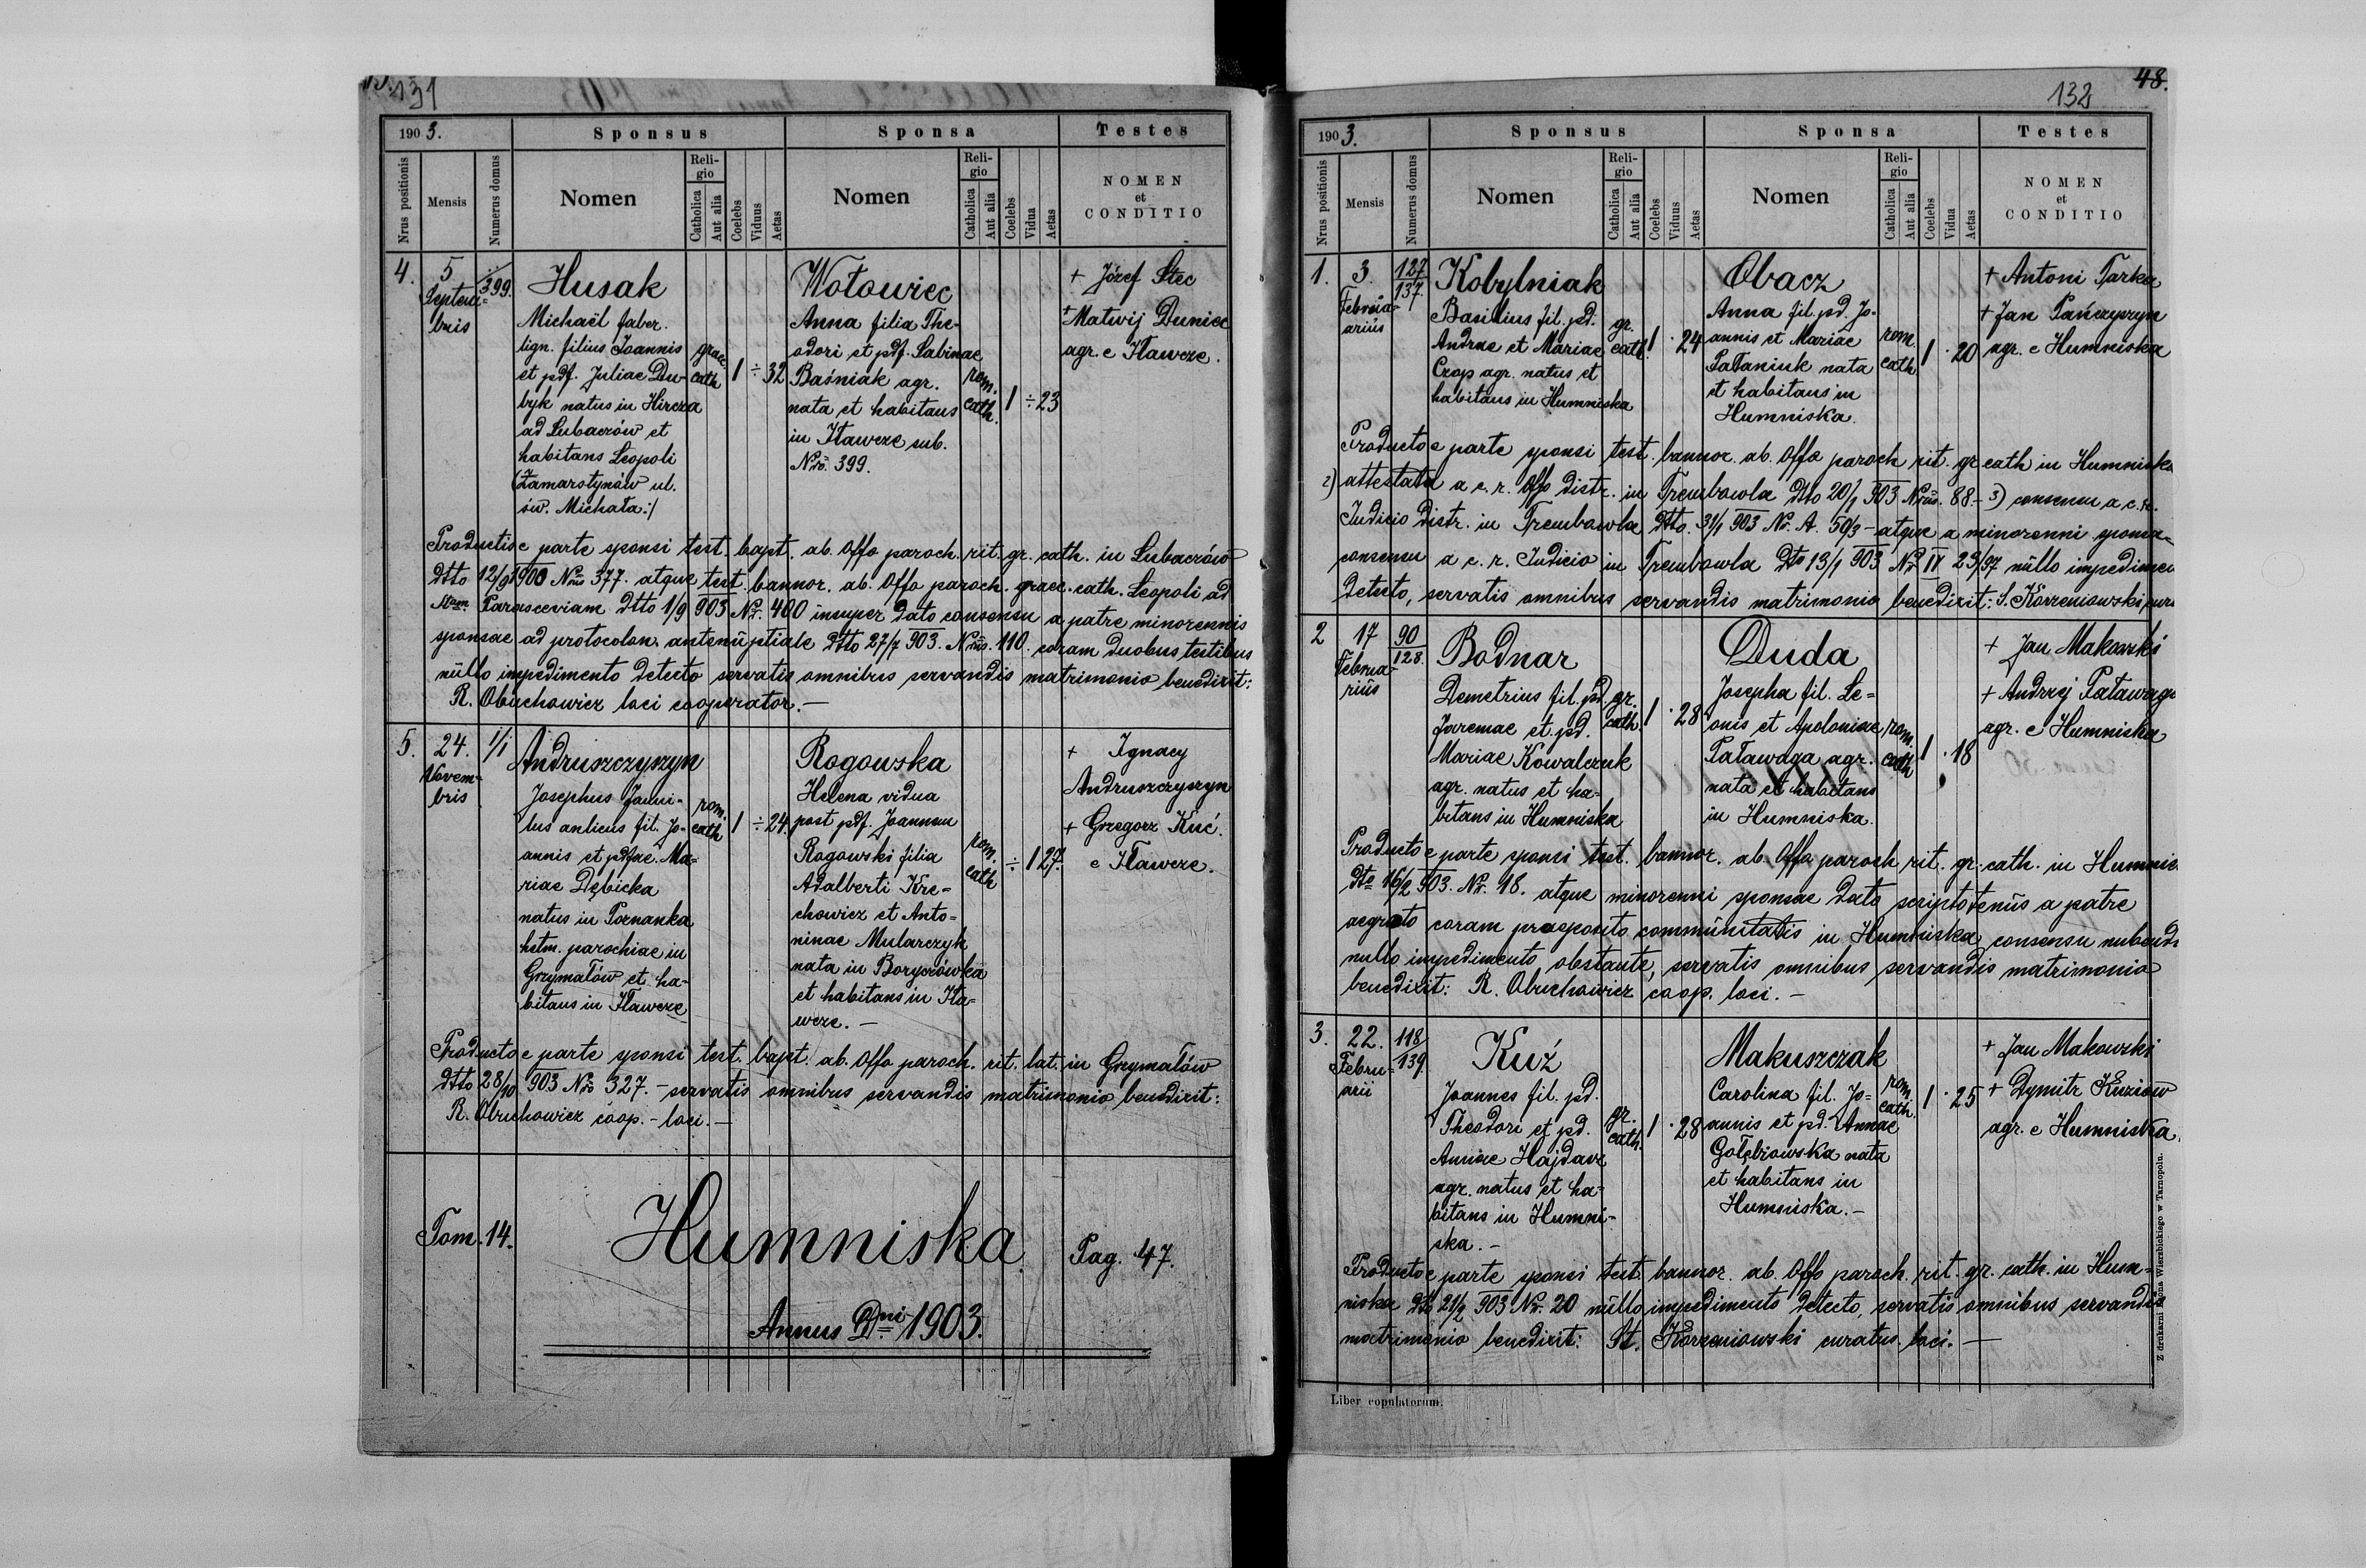 131
1903.
Sponsus
Sponsa
Testes
Nrus positionis
Mensis
Numerus domus
Nomen
Religio
Catholica
Aut alia
Coelebs
Viduus
Aetas
Nomen
Religio
Catholica
Aut alia
Coelebs
Vidua
Aetas
NOMEN
et
CONDITIO
4.
5
Septem=
bris
399.
Husak
Michaël faber.
lign. filius Joannis
et pdf. Juliae Du-
byk natus in Hircza
ad Lubaczów et
habitans Leopoli
(Zamarstynów ul.
św. Michała:/
graec.
cath
1 ÷ 32
Wołowiec
Anna filia The-
odori et pdf. Sabinae
Baśniak agr.
nata et habitans
in Iławcze sub.
Nro. 399.
rom.
cath.
1 ÷ 23
+ Józef Stec
+ Matwij Duniec
agr. e Iławcze.
Productis e parte sponsi test. bapt. ab. Offo paroch. rit. gr. cath. in Lubaczów
dtto 12/9 1900 Nro 377. atque test. bannor. ab. Offo paroch. graec. cath. Leopoli ad
Stam Parasceviam dtto 1/9 903 Nr. 400 insuper dato consensu a patre minorennis
sponsae ad protocolon. antenuptiale dtto 27/7 903. Nro. 110. coram duobus testibus
nullo impedimento detecto servatis omnibus servandis matrimonio benedixit:
R. Obuchowicz loci cooperator.—
5.
24.
Novem-
bris
1/1
Andruszczyszyn
Josephus famu-
lus aulicus fil. Jo-
annis et pdfae. Ma-
riae Dębicka
natus in Poznanka
hetm. parochiae in
Grzymałów et ha-
bitans in Iławcze
rom.
cath.
1 ÷ 24.
Rogowska
Helena vidua
post pdf. Joannem
Rogowski filia
Adalberti Kre=
chowicz et Anto=
ninae Mularczyk
nata in Boryczówka
et habitans in Iła-
wcze.—
rom.
cath
÷ 1 27.
+ Ignacy
Andruszczyszyn
+ Grzegorz Kuć.
e Iławcze.
Producto e parte sponsi test. bapt. ab. Offo paroch. rit. lat. in Grzymałów
dtto 28/10 903 Nro 327.- servatis omnibus servandis matrimonio benedixit:
R. Obuchowicz coop.- loci.—
Tom. 14.
Humniska.
Pag. 47.
Annus Dni 1903.
132
48.
1903.
Sponsus
Sponsa
Testes
Nrus positionis
Mensis
Numerus domus
Nomen
Religio
Catholica
Aut alia
Coelebs
Viduus
Aetas
Nomen
Religio
Catholica
Aut alia
Coelebs
Vidua
Aetas
NOMEN
et
CONDITIO
1.
3
Februa-
arius
127
137.
Kobylniak
Basilius fil. pd.
Andrae et Mariae
Czop agr. natus et
habitans in Humniska
gr.
cath.
1 · 24
Obacz
Anna fil. pd. Jo-
annis et Mariae
Pałaniuk nata
et habitans in
Humniska.
rom.
cath
1 · 20
+ Antoni Tarka
+ Jan Pańczyszyn
agr. e Humniska
Producto e parte sponsi test. bannor. ab. Offo paroch rit. gr. cath in Humniska
2) attestata a c. r. Offo distr. in Trembowla dtto 20/1 903 Nro. 88.- 3) consensu a c. r.
Judicio distr. in Trembowla dtto. 31/1 903 Nr. A. 50/3 - atque a minorenni sponsa-
consensu a c. r. Judicio in Trembowla dto 13/1 903 Nr IV 23/97 nullo impedimen
detecto, servatis omnibus servandis matrimonio benedixit: S. Korzeniowski cura
2
17
Februa-
rius
90
128.
Bodnar
Demetrius fil. pd.
Jaremae et pd.
Mariae Kowalczuk
agr. natus et ha-
bitans in Humniska
gr.
cath.
1 · 28
Duda
Josepha fil. Le=
onis et Apoloniae
Paławaga agr.
nata et habitans
in Humniska.
rom.
cath
1 · 18
+ Jan Makowski
+ Andrzej Paławaga
agr. e Humniska
Producto e parte sponsi test. bannor. ab. Offo paroch rit. gr. cath. in Humnis
dto 16/2 903. Nr. 18. atque minorenni sponsae dato scriptotenus a patre
aegroto coram praeposito communitatis in Humniska consensu nubendi
nullo impedimento obstante, servatis omnibus servandis matrimonio
benedixit: R. Obuchowicz coop. loci.—
3.
22.
Febru-
arii
118
139.
Kuź
Joannes fil. pd.
Theodori et pd.
Anniae Hajdasz
agr. natus et ha-
bitans in Humni-
ska.-
gr.
cath.
1 · 28
Makuszczak
Carolina fil. Jo=
annis et pd. Annae
Gołębiowska nata
et habitans in
Humniska.-
rom.
cath.
1 · 25
+ Jan Makowski
+ Dymitr Kuziów
agr. e Humniska.
Producto e parte sponsi test. bannor. ab. Offo paroch. rit. gr. cath. in Hum=
niska dto 21/2 903 Nr. 20 nullo impedimento detecto, servatis omnibus servandis
matrimonio benedixit: St. Korzeniowski curatus loci.—
Liber copulatorum.
Z drukarni Leona Wierzbickiego w Tarnopolu.